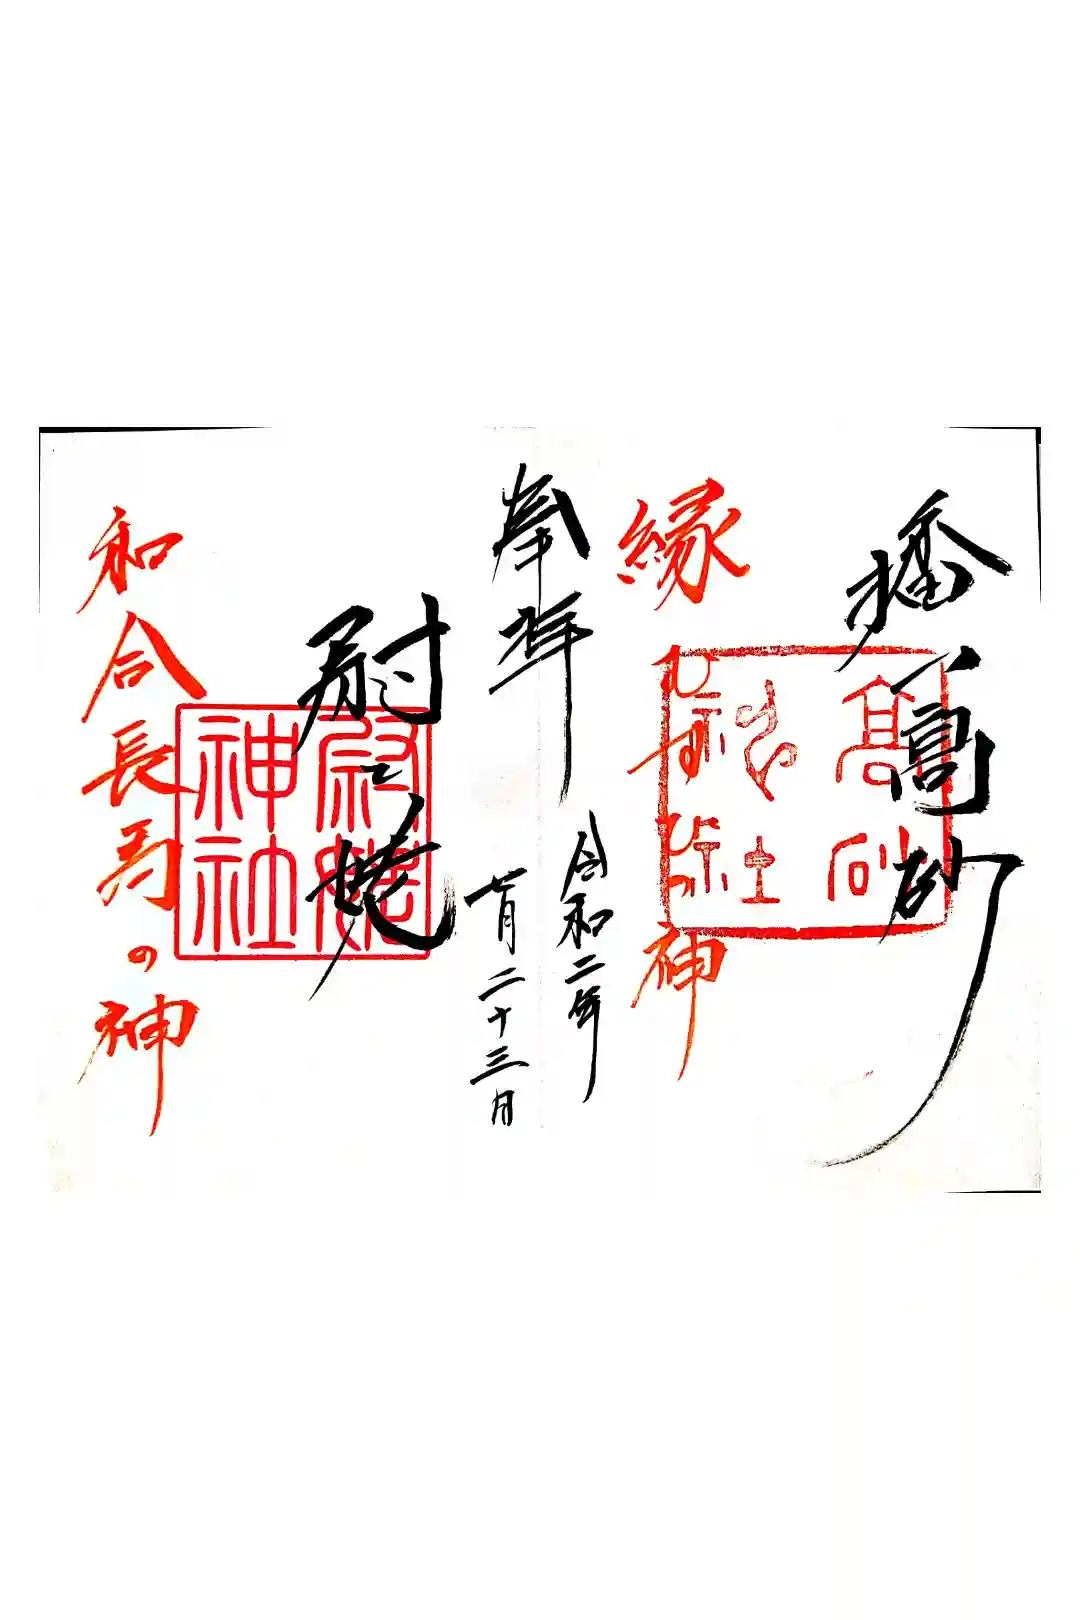 播高砂
縁むすび神
高砂神社
奉拝
令和二年
十一月二十三日
尉と姥
尉姥神社
和合長寿の神